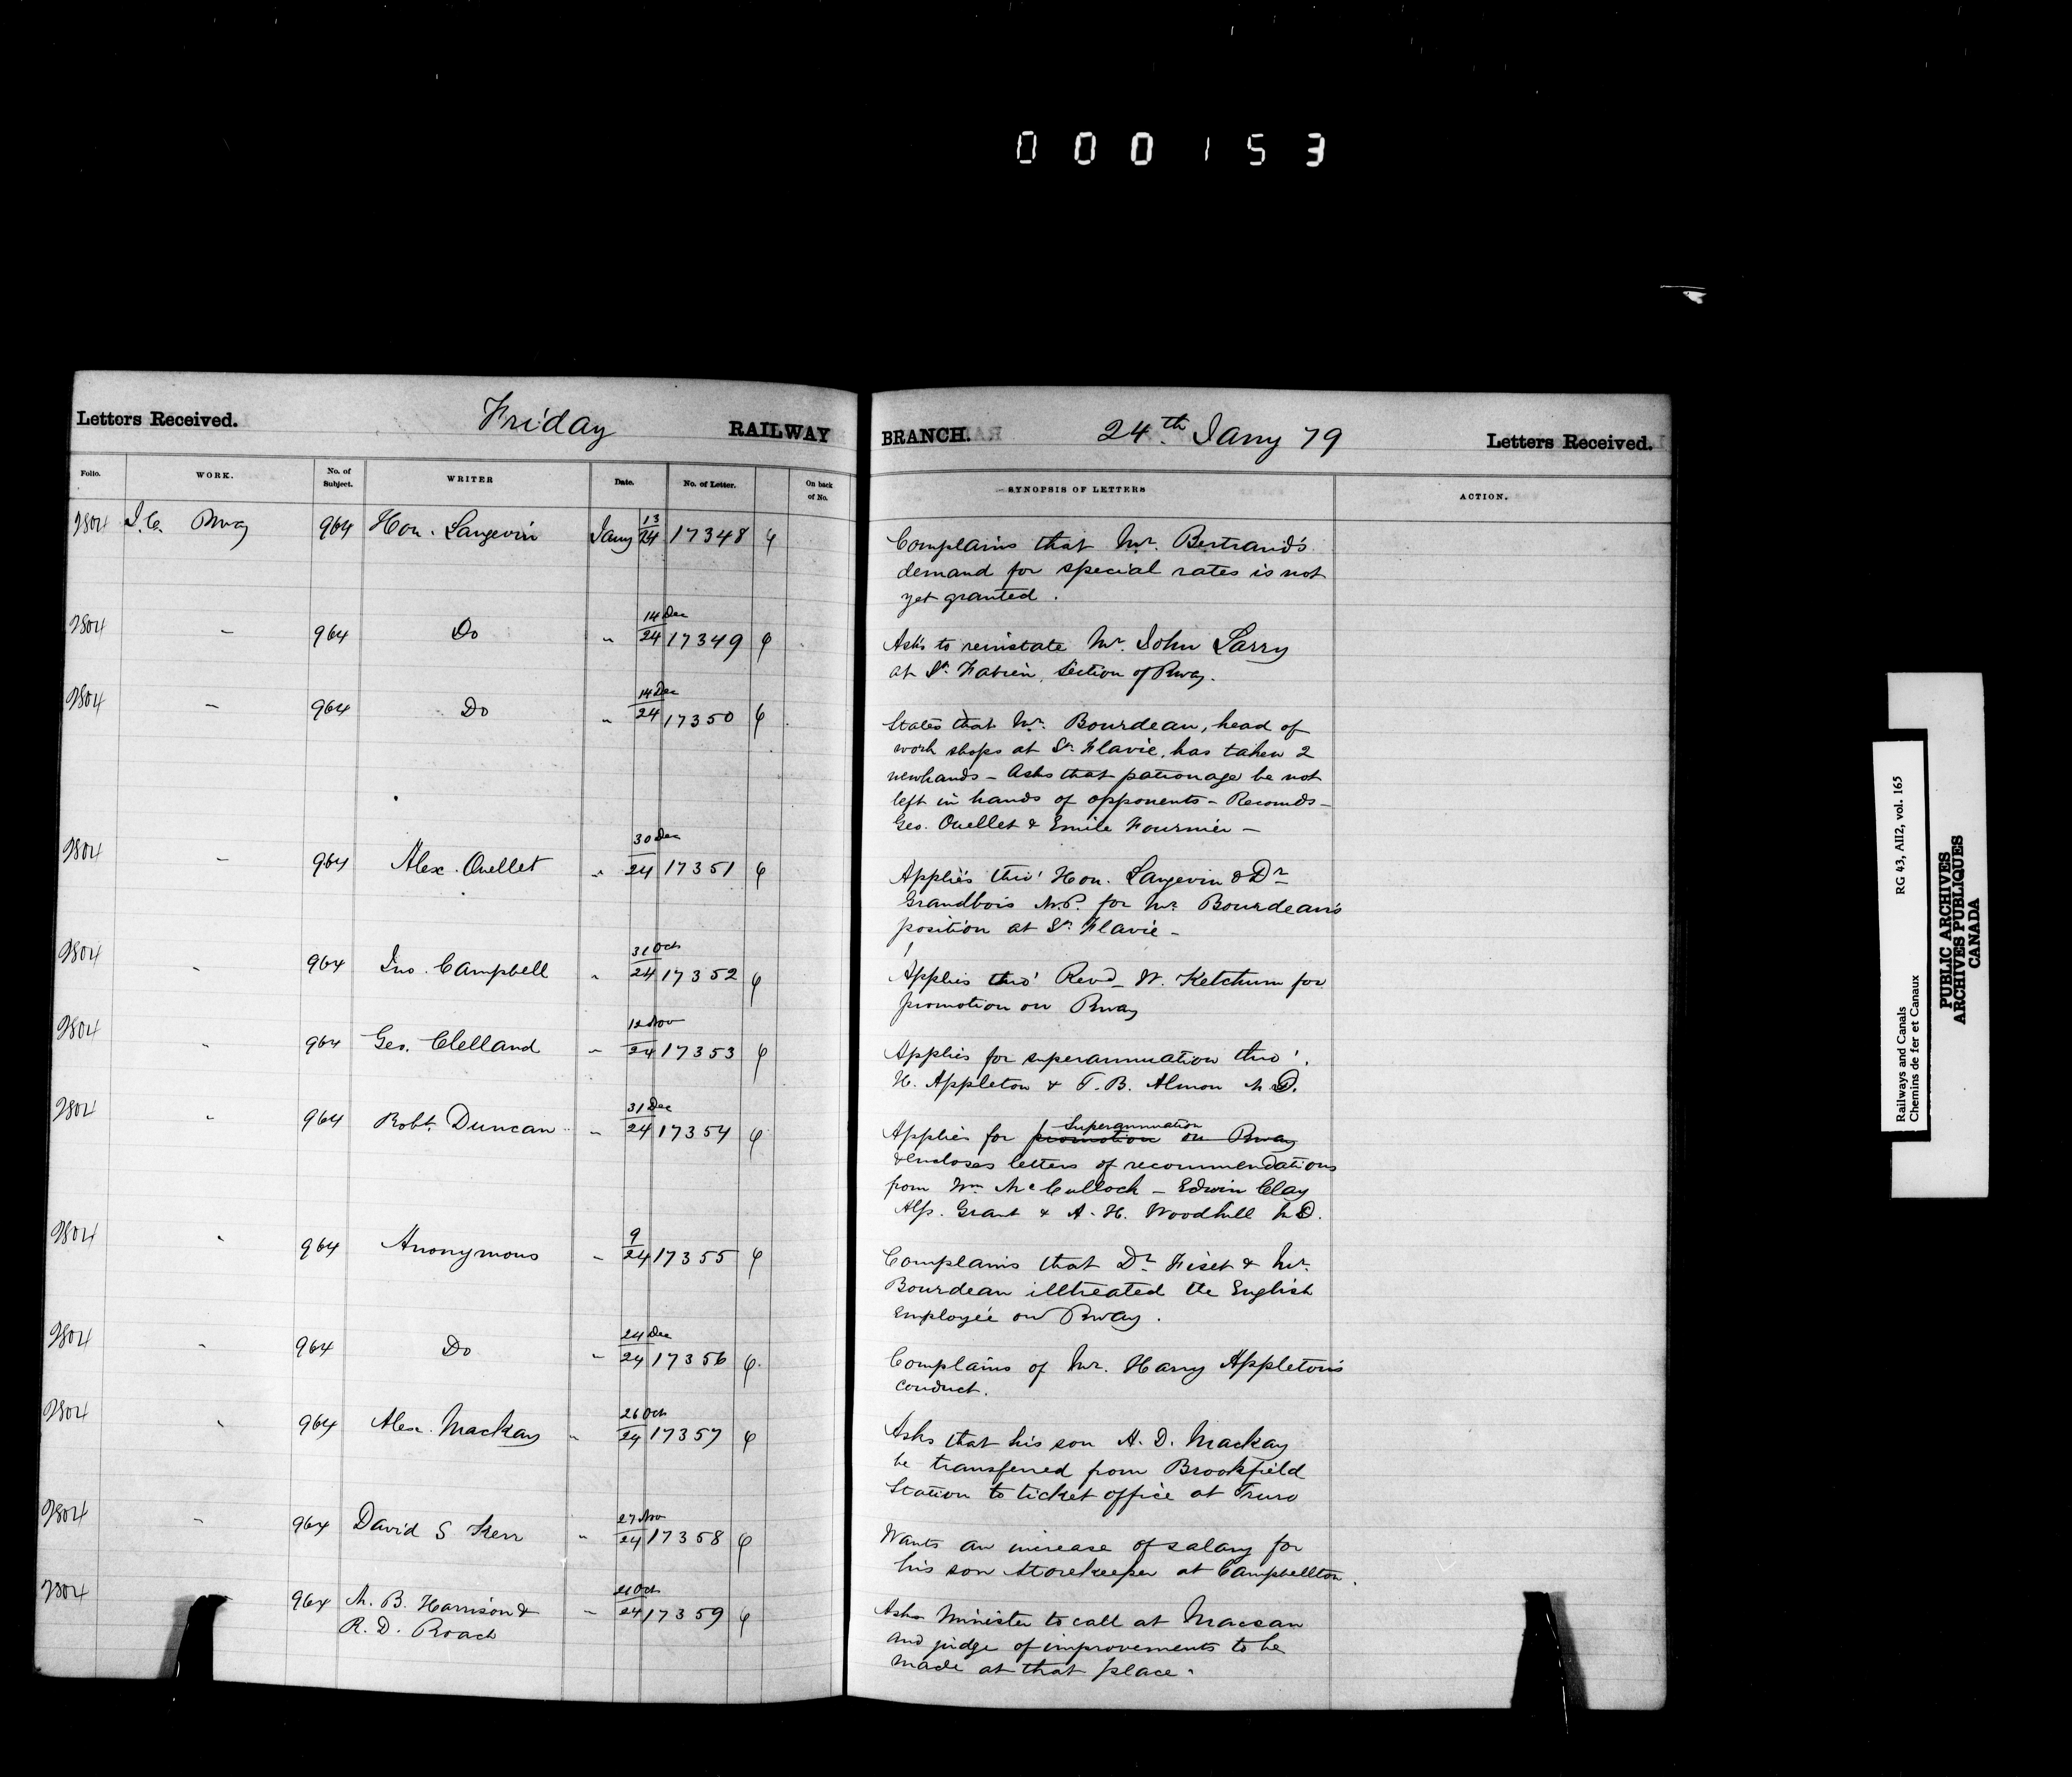 000153
Letters Received. Friday RAILWAY
BRANCH. 24th Jany 79 Letters Received.
Folio. WORK. No. of Subject. WRITER Date. No. of Letter. On back of No.
SYNOPSIS OF LETTERS ACTION.
I.C. Rway 964 Hon. Langevin Jany 13/24 17348
Complains that Mr. Bertrand's
demand for special rates is not
yet granted.
" 964 Do " 14 Dec/24 17349
Asks to reinstate Mr. John Larry
at St. Fabien, Section of Rway.
" 964 Do " 14 Dec/24 17350
States that Mr. Bourdeau, head of
work shops at St. Flavie, has taken 2
new hands - Asks that patronage be not
left in hands of opponents - Recomds -
Geo. Ouellet & Emile Fournier -
" 964 Alex. Ouellet " 30 Dec/24 17351
Applies thro' Hon. Langevin & Dr
Grandbois M.P. for Mr. Bourdeau's
position at St. Flavie -
" 964 Jno. Campbell " 31 Oct/24 17352
Applies thro' Revd. W. Ketchum for
promotion on Rway
" 964 Geo. Clelland " 12 Nov/24 17353
Applies for superannuation thro'.
H. Appleton & T. B. Almon M D.
" 964 Robt. Duncan " 31 Dec/24 17354
Applies for promotion on Rway Superannuation
& encloses letters of recommendations
from Wm McCulloch - Edwin Clay
Alp. Grant & A. H. Woodhill M D.
" 964 Anonymous " 9/24 17355
Complains that Dr. Fiset & Mr.
Bourdeau illtreated the English
Employée on Rway.
" 964 Do " 24 Dec/24 17356
Complains of Mr. Harry Appleton's
conduct.
" 964 Alex. Mackay " 26 Oct/24 17357
Asks that his son A. D. Mackay
be transferred from Brookfield
Station to ticket office at Truro
" 964 David S Kerr " 27 Nov/24 17358
Wants an increase of salary for
his son Storekeeper at Campbellton.
" 964 M. B. Harrison & R. D. Roach " 21 Oct/24 17359
Asks Minister to call at Maccan
and judge of improvements to be
made at that place.
Railways and Canals RG 43, AII2, vol. 165
Chemins de fer et Canaux
PUBLIC ARCHIVES
ARCHIVES PUBLIQUES
CANADA